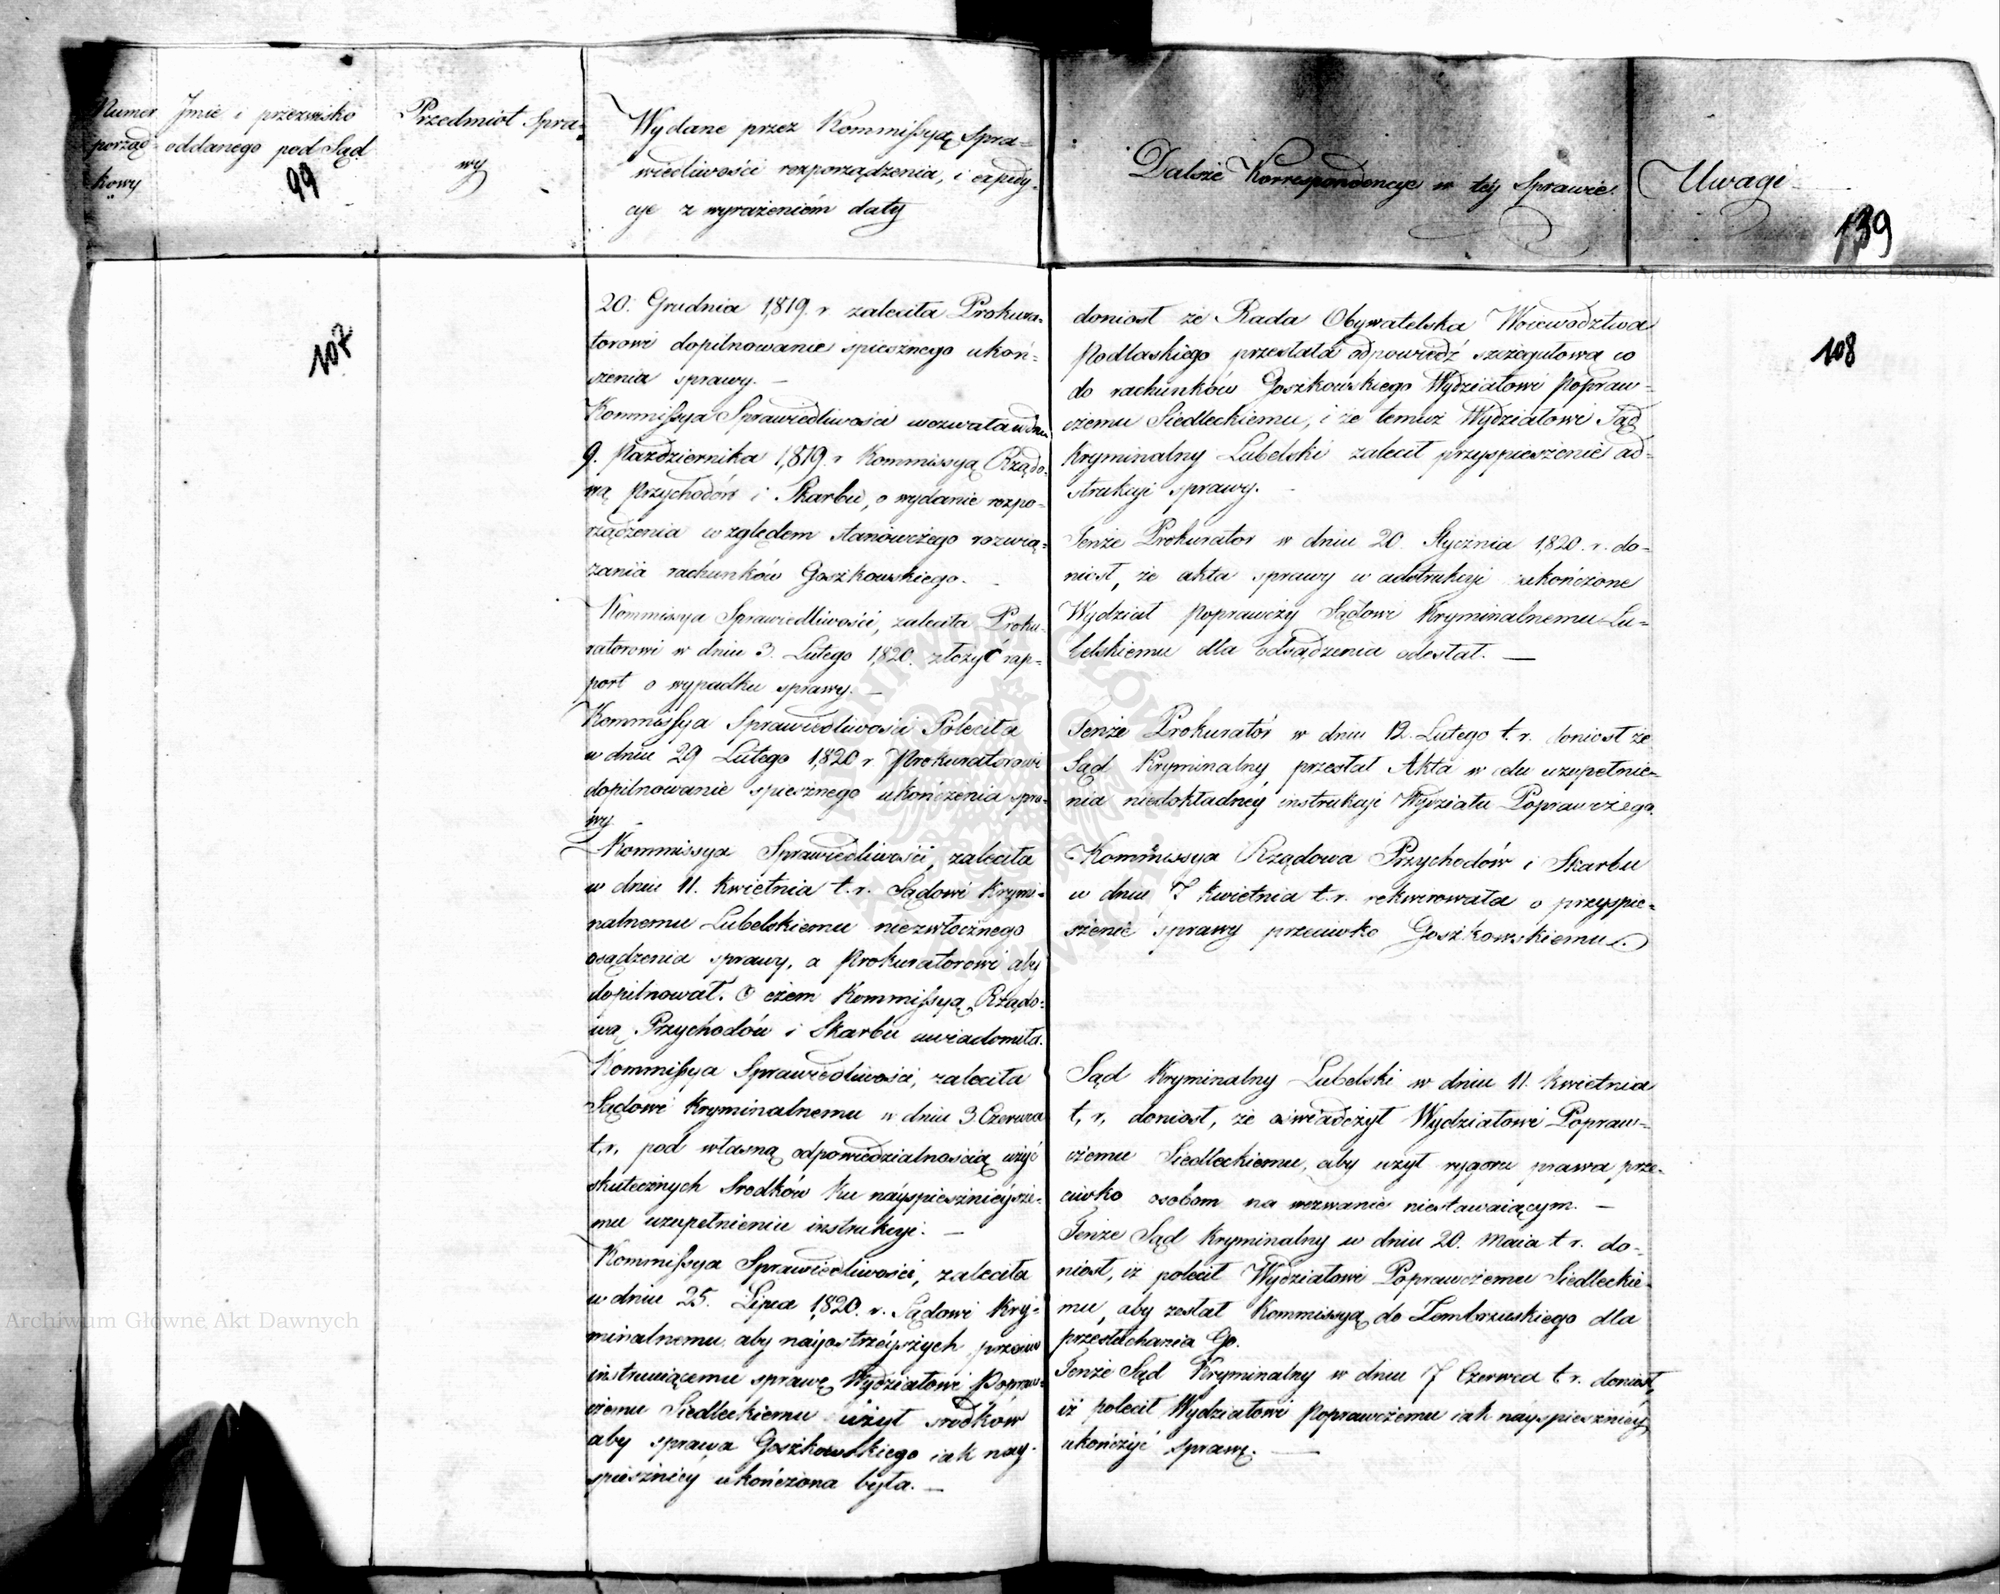 Numer
porząd-
kowy
Jmie i przezwisko
oddanego pod Sąd
99
Przedmiot Spra-
wy
Wydane przez Kommissyą Spra-
wiedliwości rozporządzenia, i expedy-
cye z wyrażeniem daty
Dalsze Korrespondencye w téy Sprawie.
Uwagi
139
107
20. Grudnia 1819. r zaleciła Prokura-
torowi dopilnowanie spiesznego ukoń-
czenia sprawy. —
Kommissya Sprawiedliwości wezwała w dniu
9. Października 1819. r Kommissyą Rządo-
wą Przychodów i Skarbu, o wydanie rozpo-
rządzenia względem stanowczego rozwią-
zania rachunków Goszkowskiego. —
Kommissya Sprawiedliwości, zaleciła Proku-
ratorowi w dniu 3. Lutego 1820. złożyć rap-
port o wypadku sprawy. —
Kommissya Sprawiedliwości Poleciła
w dniu 29 Lutego 1820 r Prokuratorowi
dopilnowanie spiesznego ukończenia spra-
wy
Kommissya Sprawiedliwości, zaleciła
w dniu 11. Kwietnia t. r. Sądowi Krymi-
nalnemu Lubelskiemu niezwłocznego
osądzenia sprawy, a Prokuratorowi aby
dopilnował. O czem Kommissyą Rządo-
wą Przychodów i Skarbu uwiadomiła.
Kommissya Sprawiedliwości, zaleciła
Sądowi Kryminalnemu w dniu 3 Czerwca
t. r. pod własną odpowiedzialnością użyć
skutecznych Srodków ku nayspiesznieysze-
mu uzupełnieniu instrukcyi. —
Kommissya Sprawiedliwości, zaleciła
w dniu 25. Lipca 1820. r. Sądowi Kry-
minalnemu aby nayostrzeyszych przeciw
instruuiącemu sprawę Wydziałowi Popraw-
czemu Siedleckiemu użył srodków
aby sprawa Goszkowskiego iak nay-
spieszniey ukończona była. —
108
doniosł że Rada Obywatelska Woiewodztwa
Podlaskiego przesłała odpowiedź szczegułowa co
do rachunków Goszkowskiego Wydziałowi Popraw-
czemu Siedleckiemu, i że temuż Wydziałowi Sąd
Kryminalny Lubelski zalecił przyspieszenie ad-
strukcyi sprawy. —
Tenże Prokurator w dniu 20. Stycznia 1820. r. do-
niosł, że akta sprawy w adstrukcyi ukończone
Wydział Poprawczy Sądowi Kryminalnemu Lu-
belskiemu dla odsądzenia odesłał. —
Tenże Prokurator w dniu 12. Lutego t. r. doniosł że
Sąd Kryminalny przesłał Akta w celu uzupełnie-
nia niedokładney instrukcyi Wydziału Poprawczego.
Kommissya Rządowa Przychodów i Skarbu
w dniu 7 Kwietnia t. r. rekwirowała o przyspie-
szenie sprawy przeciwko Goszkowskiemu.
Sąd Kryminalny Lubelski w dniu 11. Kwietnia
t. r. doniosł, że oświadczył Wydziałowi Popraw-
czemu Siedleckiemu, aby użył rygoru prawa prze-
ciwko osobom na wezwanie niestawaiącym. —
Tenże Sąd Kryminalny w dniu 20. Maia t. r. do-
niosł, iż polecił Wydziałowi Poprawczemu Siedleckie-
mu, aby zesłał Kommissyą do Zembrzuskiego dla
przesłuchania Go.
Tenże Sąd Kryminalny w dniu 7 Czerwca t. r. doniosł,
iż polecił Wydziałowi Poprawczemu iak nayspieszniey
ukończyć sprawę. —
Archiwum Główne Akt Dawnych
Archiwum Główne Akt Dawnych